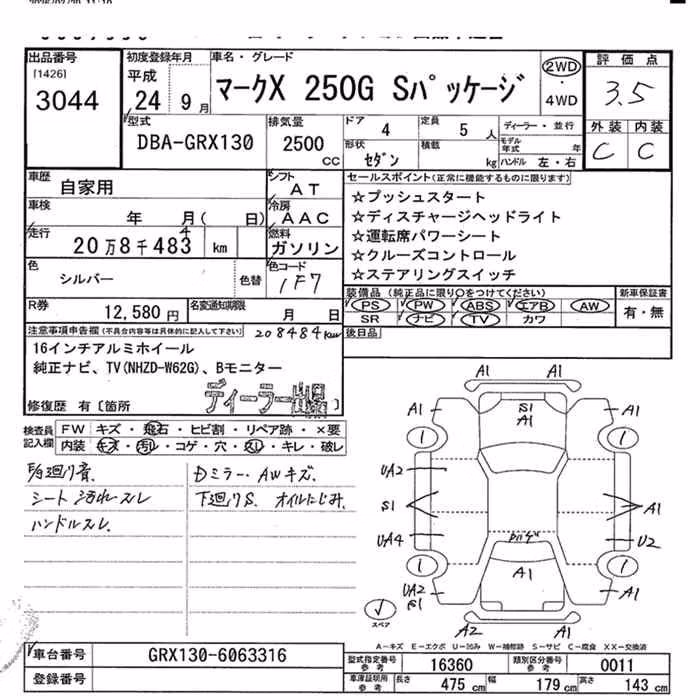 出品番号
[1426]
3044
初度登録年月
平成
24 9月
車名・グレード
マークX 250G Sパッケージ
2WD
・
4WD
評価点
3.5
外装 内装
C C
型式
DBA-GRX130
排気量
2500 CC
ドア 4
定員 5人
ディーラー・並行
形状 セダン
積載 kg
モデル年式 年
ハンドル 左・右
車歴
自家用
シフト
AT
車検
年 月( 日)
冷房
AAC
走行
20万8千483 km
4
燃料
ガソリン
色
シルバー
色替
色コード
1F7
R券
12,580円
名変通知期限
月 日
セールスポイント(正常に機能するものに限ります)
☆プッシュスタート
☆ディスチャージヘッドライト
☆運転席パワーシート
☆クルーズコントロール
☆ステアリングスイッチ
装備品(純正品に限り○をつけてください)
PS PW ABS エアB AW
SR ナビ TV カワ
新車保証書
有・無
後日品
注意事項申告欄(不具合内容等は具体的に記入して下さい)
208484km
16インチアルミホイール
純正ナビ、TV(NHZD-W62G)、Bモニター
ディーラー出品
修復歴 有〔箇所 〕
検査員記入欄
FW キズ・飛石・ヒビ割・リペア跡・×要
内装 キズ・汚れ・コゲ・穴・スレ・キレ・破レ
シート汚れスレ
ハンドルスレ.
Dミラー・AWキズ.
下廻りS. オイルにじみ.
A1 A1
A1 S1 A1 A1
1 1
UA2
S1 A1
UA4 U2
1 1
A1
UA2 S1 A1
A2 A1
スペア
A-キズ E-エクボ U-凹み W-補修跡 S-サビ C-腐食 XX-交換済
車台番号
GRX130-6063316
登録番号
型式指定番号 参考
16360
類別区分番号 参考
0011
車庫証明用 参考
長さ 475cm 幅 179cm 高さ 143cm